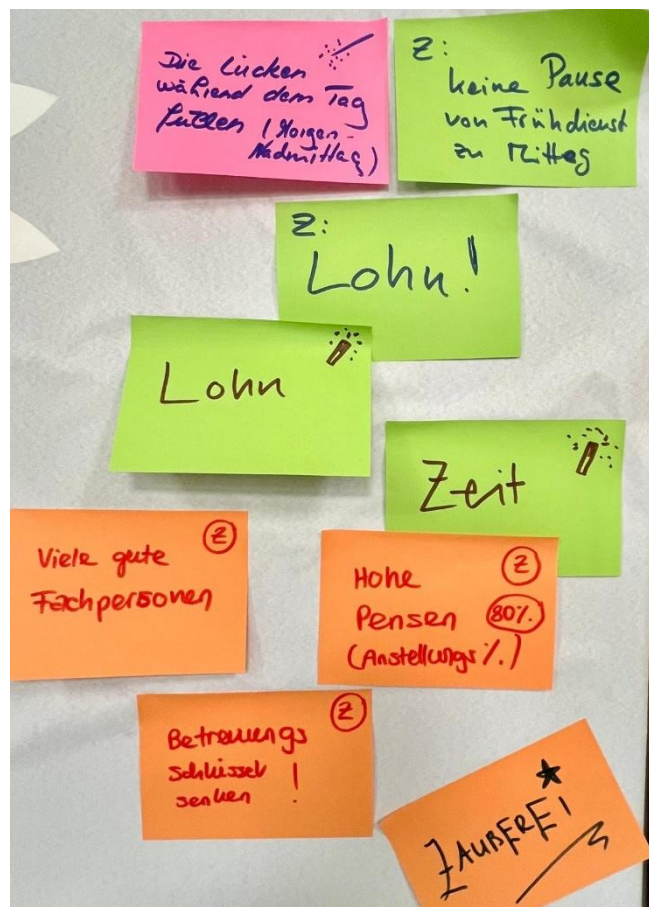 Die Lücken
während dem Tag
füllen (Morgen-
Nachmittag)
Z:
keine Pause
von Frühdienst
zu Mittag
Z:
Lohn!
Lohn
Zeit
Viele gute Z
Fachpersonen
Hohe Z
Pensen 80%
(Anstellungs%)
Z
Betreuungs
schlüssel !
senken
ZAUBEREI